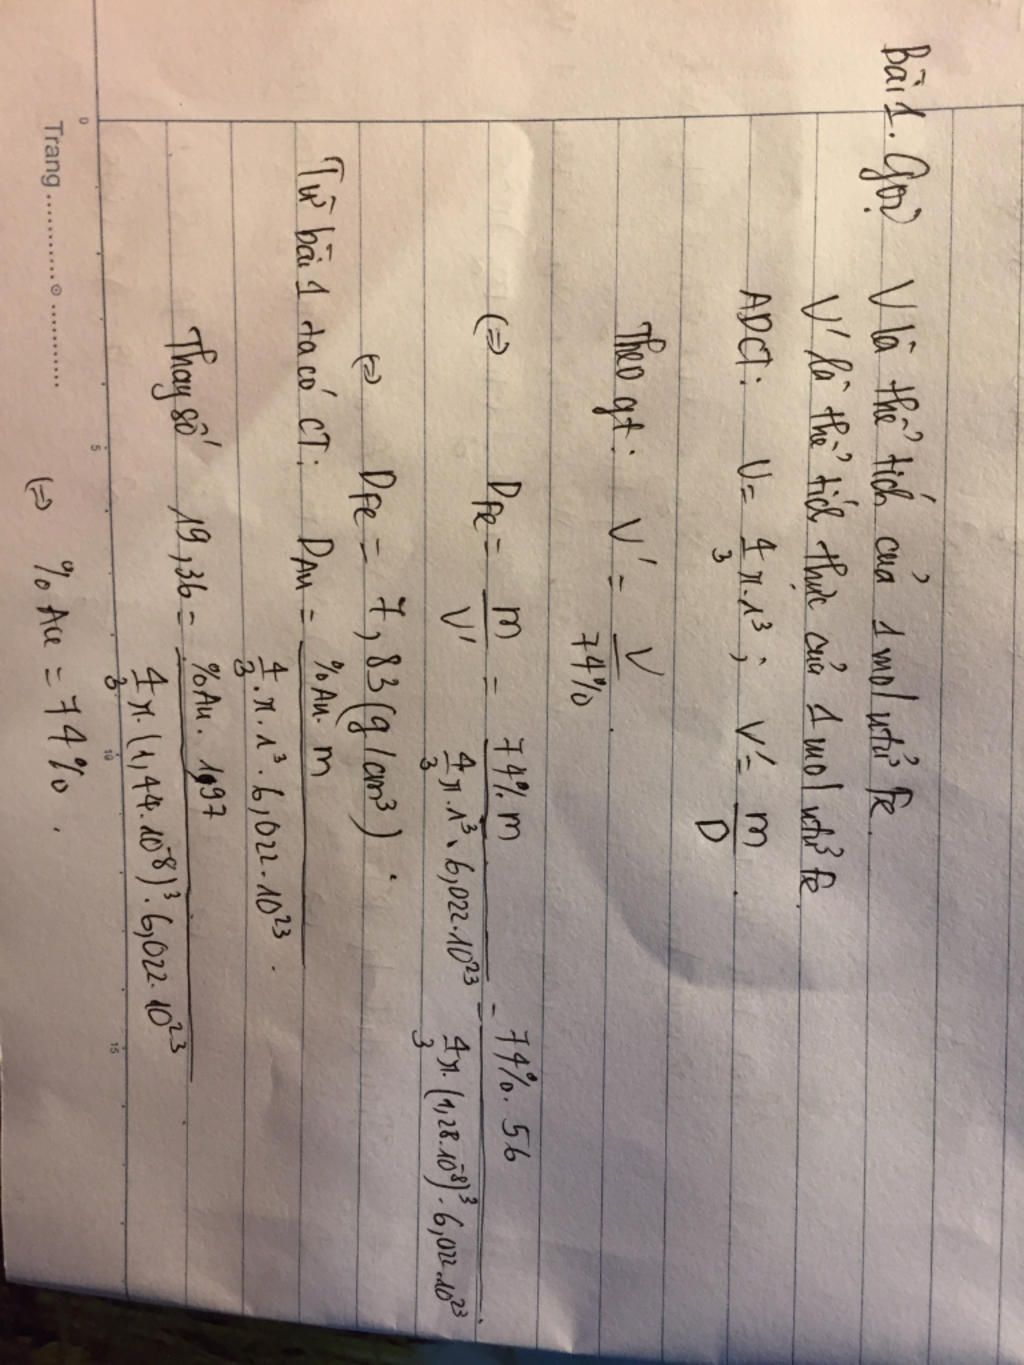 Bài 1. Gọi V là thể tích của 1 mol ntử Fe.
V' là thể tích thực của 1 mol ntử Fe.
ADCT: V = 4/3 π.r³ ; V' = m/D .
Theo gt: V' = V/74% .
(=) D_Fe = m/V' = 74%.m / (4/3 π.r³.6,022.10²³) = 74%.56 / (4/3 π.(1,28.10⁻⁸)³.6,022.10²³) .
(=) D_Fe = 7,83 (g/cm³) .
Từ bài 1 ta có CT: D_Au = %Au.m / (4/3.π.r³.6,022.10²³) .
Thay số 19,36 = %Au.197 / (4/3 π.(1,44.10⁻⁸)³.6,022.10²³) .
(=) %Au = 74% .
0 5 10 15
Trang